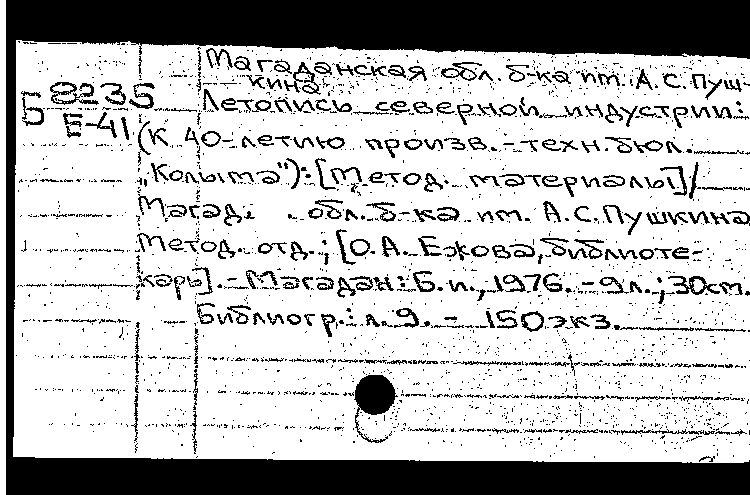 Магаданская обл. б-ка им. А.С. Пуш-
кина
Б 8235
Е-41
Летопись северной индустрии:
(К 40-летию произв.-техн. бюл.
„Колыма"): [Метод. материалы] /
Магад. обл. б-ка им. А.С. Пушкина
Метод. отд.; [О.А. Ежова, библиоте-
карь]. - Магадан: Б.и., 1976. - 9л.; 30см.
Библиогр.: л. 9. - 150 экз.